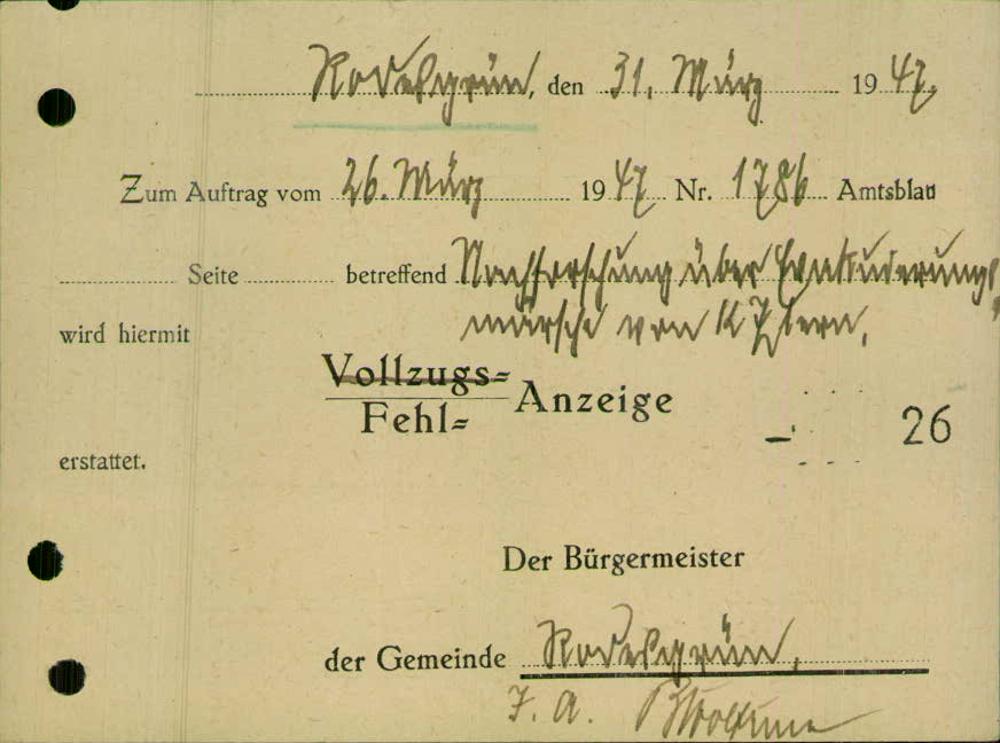 Rodesgrün, den 31. März 1947.
Zum Auftrag vom 26. März 1947 Nr. 1786 Amtsblatt
Seite betreffend Nachforschung über Evakuierungs
wird hiermit märsche von KZlern.
Vollzugs=
Fehl= Anzeige
26
erstattet.
Der Bürgermeister
der Gemeinde Rodesgrün,
I. A.